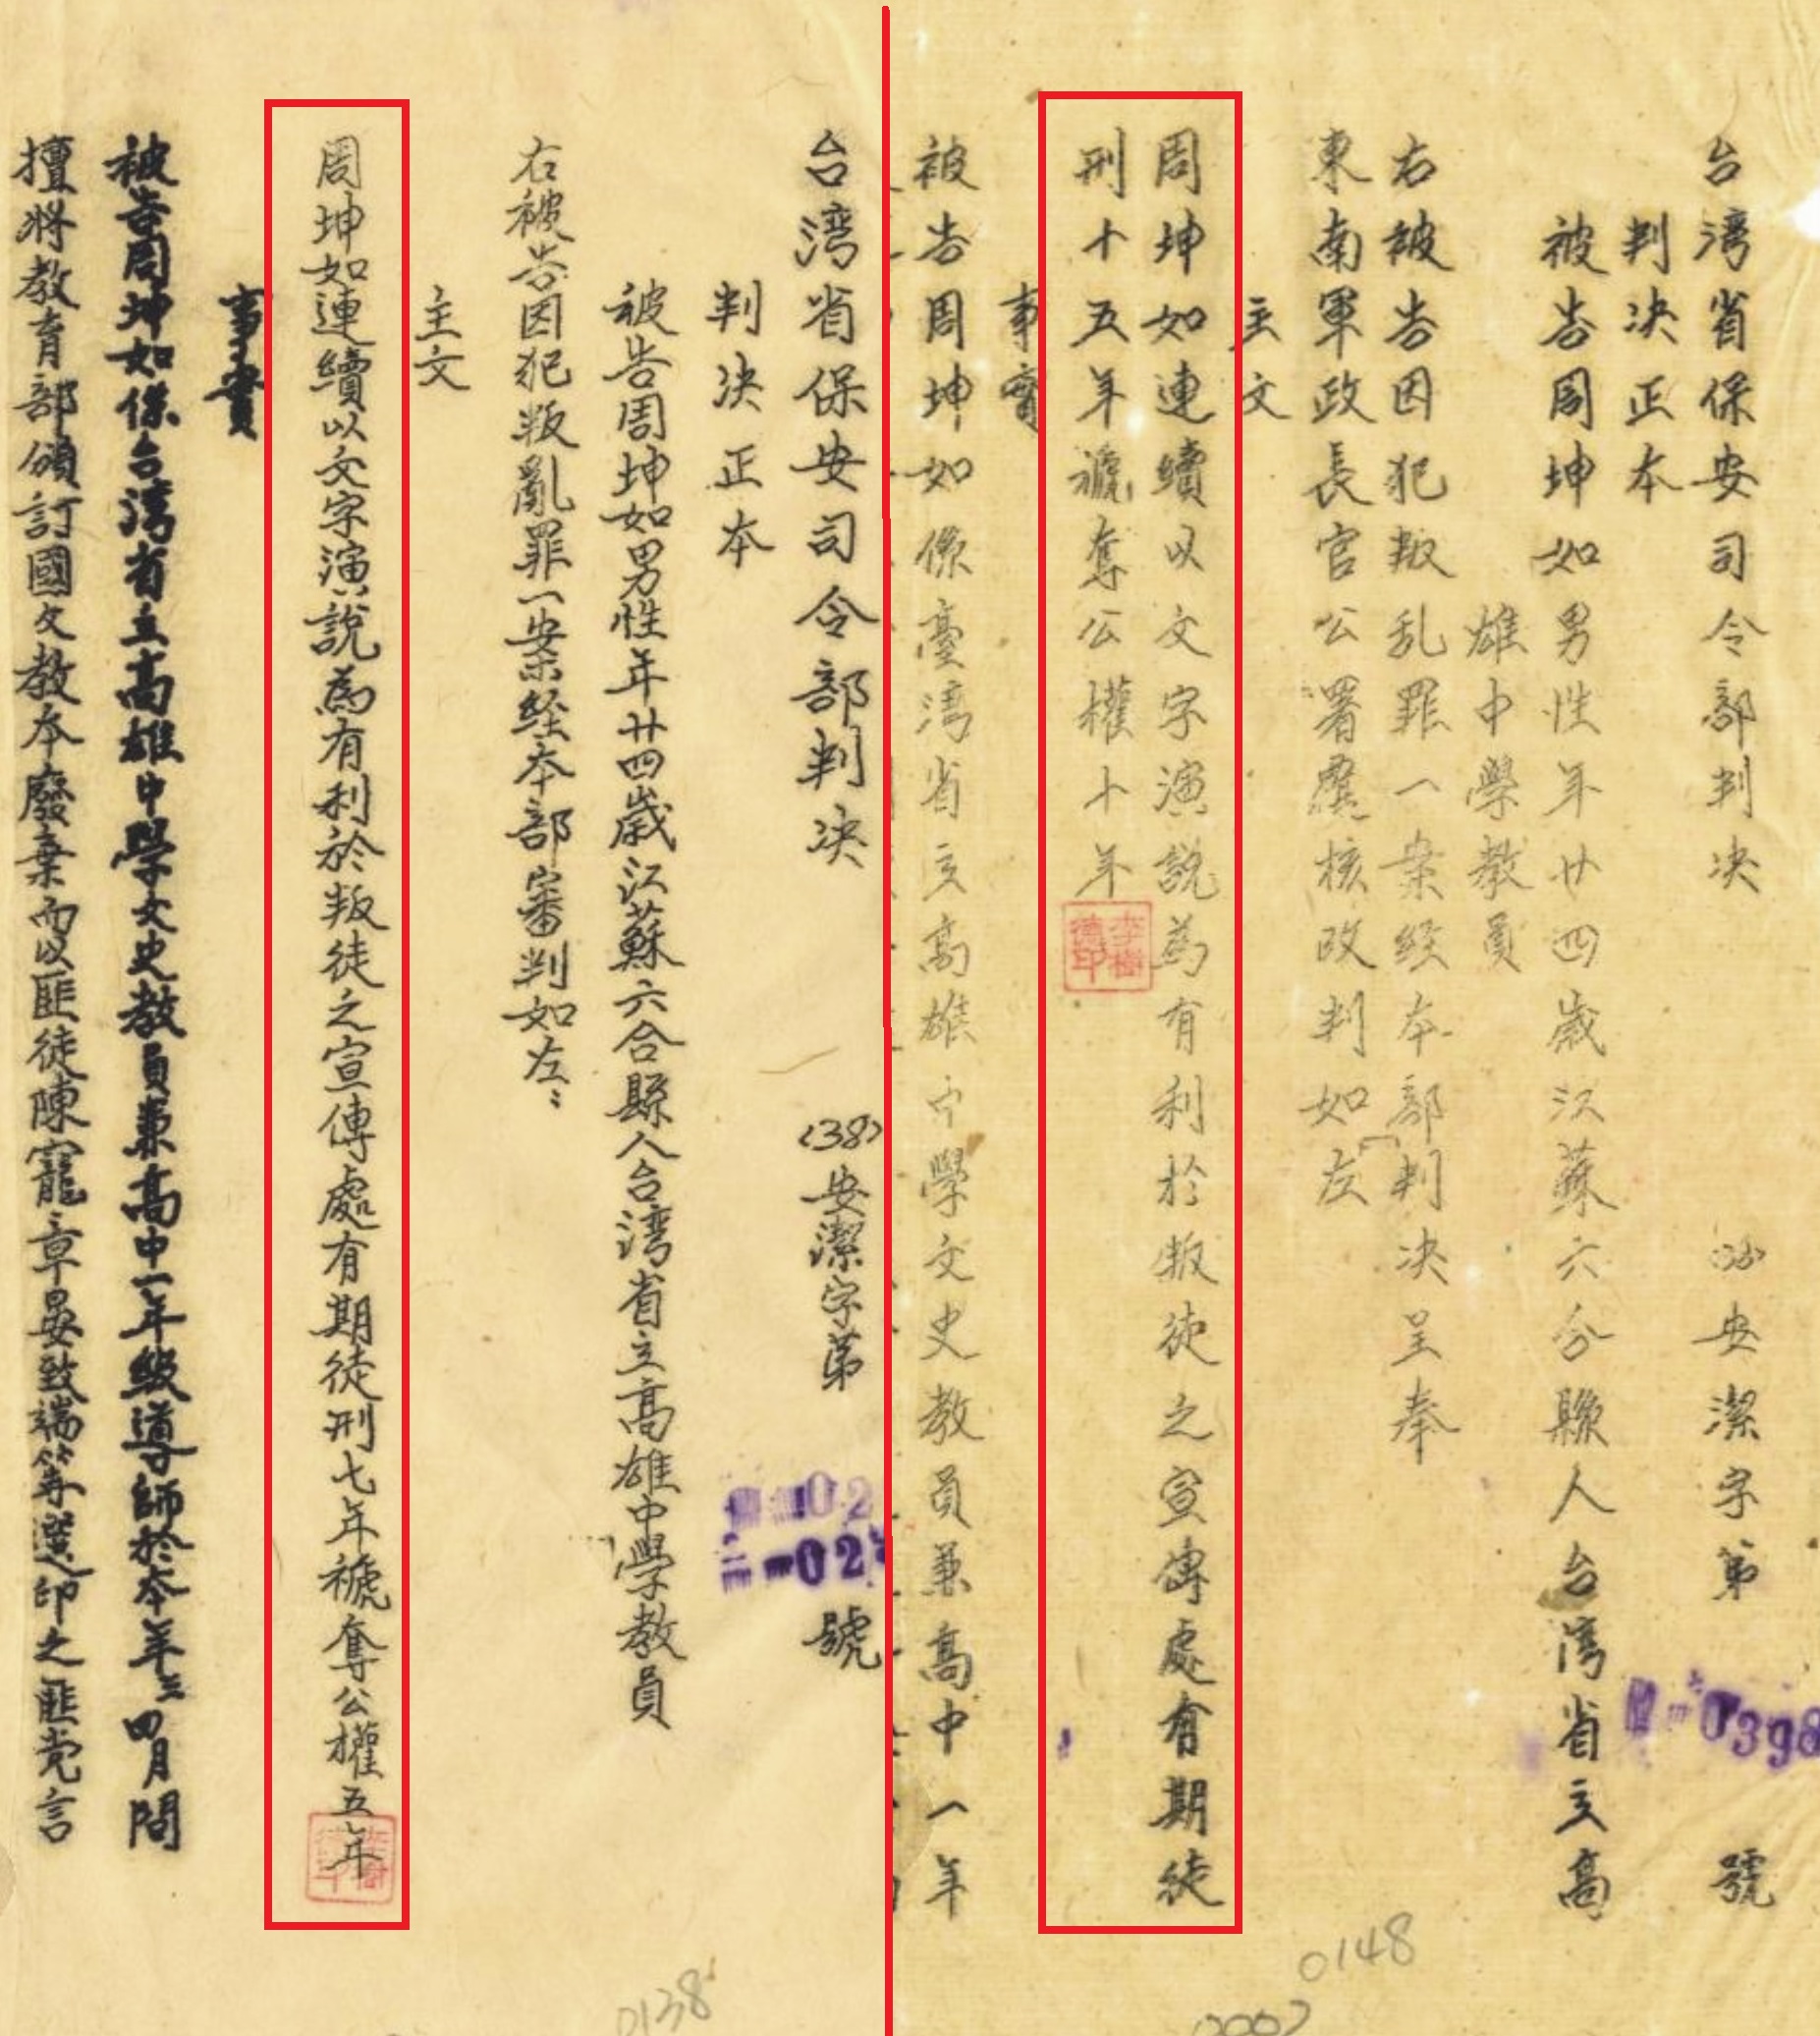 台湾省保安司令部判决
安潔字第
0398
號
判决正本
被告周坤如男性年廿四歲江蘇六合縣人台湾省立高
雄中學教員
右被告因犯叛乱罪一案经本部判决呈奉
東南軍政長官公署覆核改判如左
主文
周坤如連續以文字演説為有利於叛徒之宣傳處有期徒
刑十五年褫奪公權十年
李樹德印
事實
被告周坤如係臺湾省立高雄中學文史教員兼高中一年
0148
台湾省保安司令部判决
(38)安潔字第
02
02
號
判决正本
被告周坤如男性年廿四歲江蘇六合縣人台湾省立高雄中學教員
右被告因犯叛亂罪一案経本部審判如左：
主文
周坤如連續以文字演說為有利於叛徒之宣傳處有期徒刑七年褫奪公權五年
事實
被告周坤如係台湾省立高雄中學文史教員兼高中一年級導師於本年三四月間
擅將教育部頒訂國文教本廢棄而以匪徒陳寵章晏致端等選印之匪党言
0138